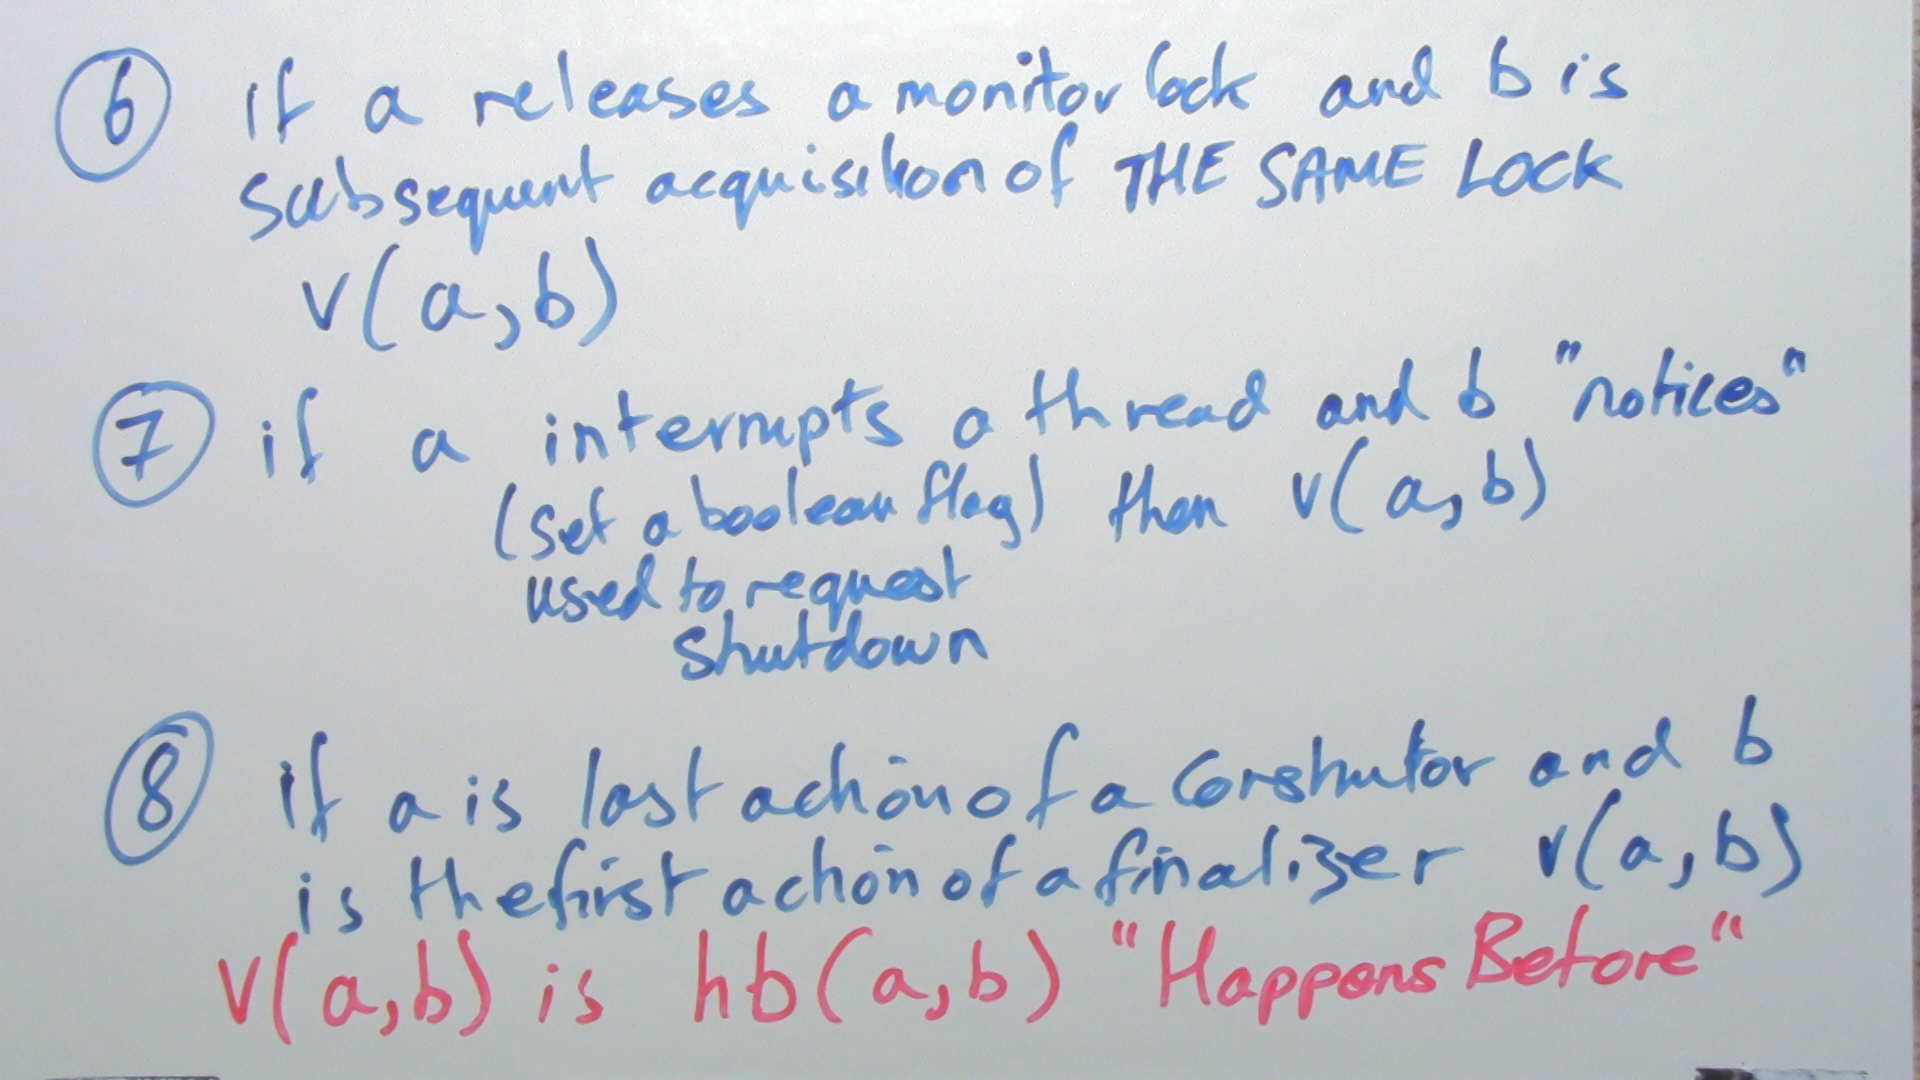 6 if a releases a monitor lock and b is
subsequent acquisition of THE SAME LOCK
v(a,b)
7 if a interrupts a thread and b "notices"
(set a boolean flag) then v(a,b)
used to request
shutdown
8 if a is last action of a constructor and b
is the first action of a finalizer v(a,b)
v(a,b) is hb(a,b) "Happens Before"